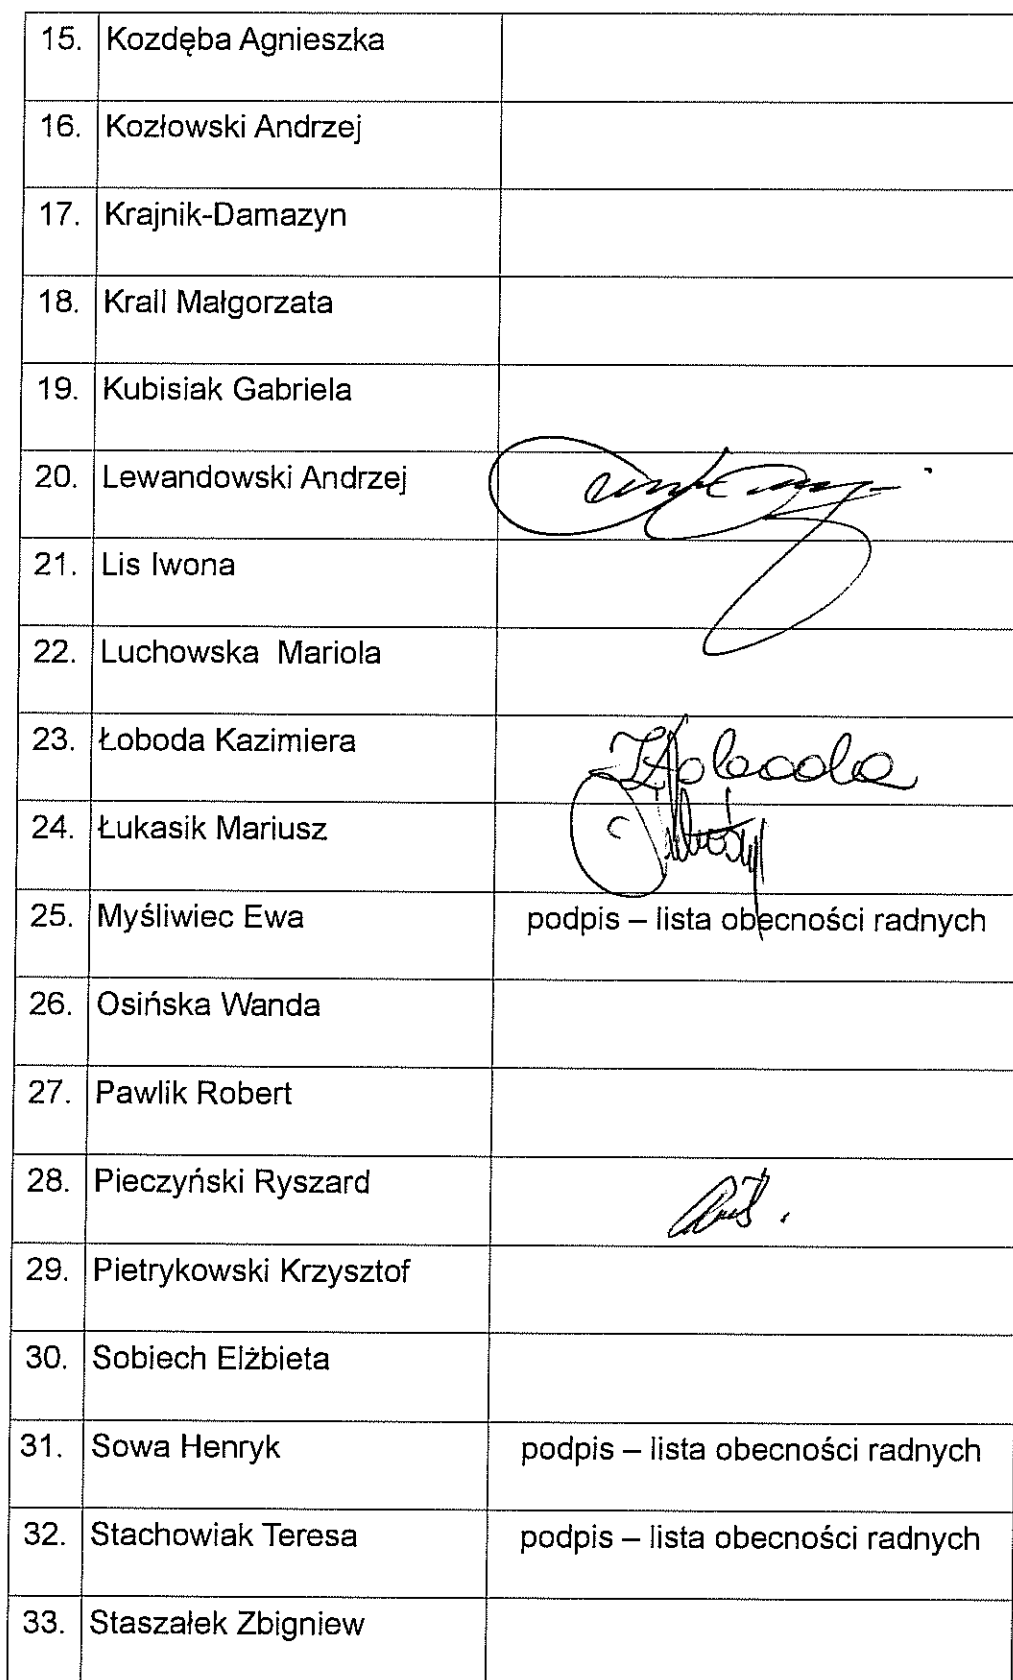 15. Kozdęba Agnieszka
16. Kozłowski Andrzej
17. Krajnik-Damazyn
18. Krall Małgorzata
19. Kubisiak Gabriela
20. Lewandowski Andrzej
21. Lis Iwona
22. Luchowska Mariola
23. Łoboda Kazimiera
24. Łukasik Mariusz
25. Myśliwiec Ewa podpis – lista obecności radnych
26. Osińska Wanda
27. Pawlik Robert
28. Pieczyński Ryszard
29. Pietrykowski Krzysztof
30. Sobiech Elżbieta
31. Sowa Henryk podpis – lista obecności radnych
32. Stachowiak Teresa podpis – lista obecności radnych
33. Staszałek Zbigniew